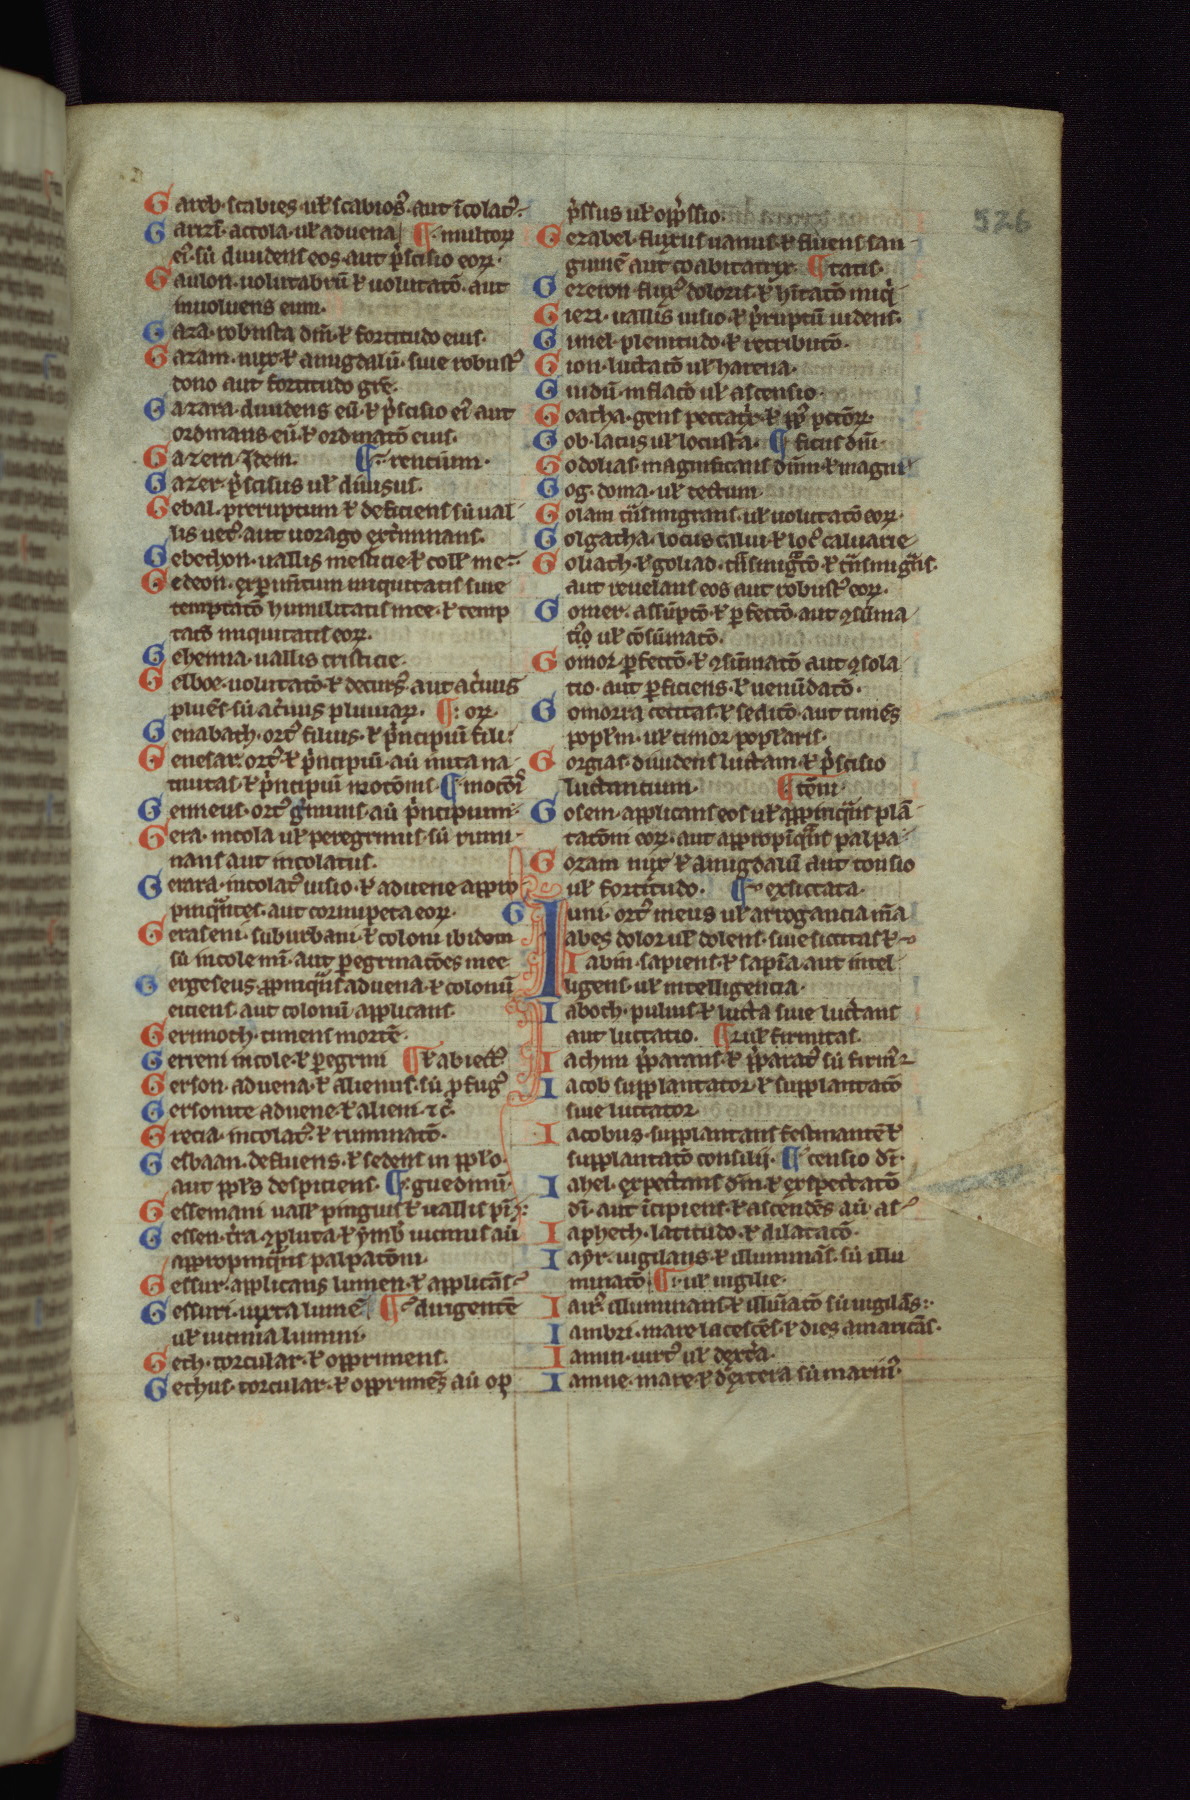 526
Gareb · scabies ul' scabios9 · aut īcolat9 ·
Garizī · accola · ul' aduena ¶ · multoꝝ
ei9 · sū diuidens eos · aut p̄scisio eoꝝ ·
Gaulon · uolutabrū ⁊ uolutatō · aut
inuoluens eum ·
Gaza · robusta dn̄i · ⁊ fortitudo eius ·
Gazam · nux · ⁊ amigdalū · siue robust9
dono aut fortitudo gr̄e ·
Gazara · diuidens eū · ⁊ p̄scisio ei9 aut
ordinans · eū · ⁊ ordinatō eius ·
Gazera · Idem · ¶ · rentium ·
Gazer · p̄scisus ul' diuisus ·
Gebal · preruptum ⁊ deficiens sū ual
lis uet9 · aut uorago ext̄minans ·
Gebethon · uallis mesticie · ⁊ coll' me
Gedeon · expim̄tum iniquitatis siue
temptatō humilitatis mee · ⁊ temp
tatō iniquitatis eoꝝ ·
Gehenna · uallis tristicie ·
Gelboe · uolutatō · ⁊ decurs9 · aut ac̄uus
pluēs · sū ac̄uus pluuiaꝝ · ¶ : oꝝ ·
Genabath · ort9 filius · ⁊ p̄ncipiū fili
Genesar · ort9 · ⁊ p̄ncipiū · aū nuta na
tiuitas · ⁊ p̄ncipiū motōnis · ¶ · motōis
Genneus · ort9 ḡminis · aū p̄ncipium ·
Gera · incola ul' peregrinus · sū rumi
nans aut incolatus ·
Gerara · incolat9 uisio · ⁊ aduene appro
pinq̄ntes · aut cornupeta eoꝝ ·
Geraseni · suburbani · ⁊ coloni ibidem
sū incole mī · aut peregrinatōes mee
Gergeseus · ꝓpinq̄s aduena · ⁊ colonū
eiciens · aut colonū applicans ·
Gerimoth · timens mortē ·
Gerreni incole · ⁊ peregrini ¶ ⁊ abiect9
Gerson · aduena · ⁊ alienus · sū ꝓfug9
Gersonite aduene · ⁊ alieni · ⁊c̄ ·
Grecia · incolat9 · ⁊ ruminatō ·
Gesbaan · defluens · ⁊ sedens in pp̄lo ·
aut pp̄ls despiciens · ¶ · guedinū ·
Gessemani uall' pinguis ⁊ uallis
Gessen · t̄ra · ꝯpluta · ⁊ ymb2 uicinus aū
appropinq̄ns palpatōni ·
Gessur · applicans lumen · ⁊ applicās
Gessuri · iuxta lume ¶ dirigentē
ul' uicinia lumini ·
Geth · torcular · ⁊ opprimens ·
Gethus · torcular · ⁊ opprimēs aū op
p̄ssus ul' opp̄ssio ·
Gezabel · fluxus uanus · ⁊ fluens san
guinē aut coabitatrix · ¶ tatis ·
Gezeron · flux9 doloris · ⁊ h̄itatō iniq̄
Giezi · uallis uisio · ⁊ p̄ruptū uidens ·
Gimel · plenitudo · ⁊ retributō ·
Gion · luctatō ul' harena ·
Guidū · inflatō ul' ascensio ·
Goatha · gens peccatx̄ · ⁊ pp9 pctōrꝝ ·
Gob · lacus ul' locusta · ¶ ficus dn̄i
Godolias · magnificans dn̄m · ⁊ magni
Gog · doma · ul' tectum ·
Golam t̄nsmigrans · ul' uolutatō eoꝝ ·
Golgatha · locus calui · ⁊ loc9 caluarie
Goliath · ⁊ goliad · t̄nsmig̃tō ⁊ t̄nsmig̃ns ·
aut reuelans eos aut robust9 eoꝝ ·
Gomer · assūptō · ⁊ perfectō · aut ꝯsūma
t9o ul' cōsūmatō ·
Gomor · perfectō · ⁊ ꝯsūmatō aut ꝯsola
tio · aut perficiens · ⁊ uenūdatō ·
Gomorra cecitas · ⁊ seditō · aut timēs
popl'm · ul' timor popl'aris ·
Gorgias · diuidens luctam · ⁊ p̄scisio
luctantium · ¶ tōni ·
Gosem · applicans eos ul' appinq̄ns plā
tatōni eoꝝ · aut appropīq̄ns palpa
Gozam nux · ⁊ amigdalū aut tonsio
ul' fortitudo · ¶ exsiccata ·
Guni · ort9 meus ul' arrogancia m̄a
Iabes dolor ul' dolens · siue siccitas ⁊
Iabin · sapiens · ⁊ sapīa · aut intel
ligens · ul' intelligencia ·
Iaboch · puluis · ⁊ lucta siue luctans
aut luctatio · ¶ ul' firmitas ·
Iachim p̄parans · ⁊ p̄parat9 sū firm9
Iacob supplantator · ⁊ supplantatō
siue luctator ·
Iacobus · supplantans festinantē ⁊
supplantatō consilij · ¶ censio dī ·
Iahel · expectans dm̄ · ⁊ expectatō
dī · aut īcipiens · ⁊ ascendēs aū as
Iapheth · latitudo · ⁊ dilatatō ·
Iayr · uigilans · ⁊ illuminās · sū illu
minatō ¶ ul' uigilie ·
Iair9 illuminans · ⁊ illuīatō sū uigilās :
Iambri · mare lacescēs · ⁊ dies amaricās ·
Iamin · uirt9 ul' dext̄a ·
Iamne · mare · ⁊ dextera sū marin9 ·